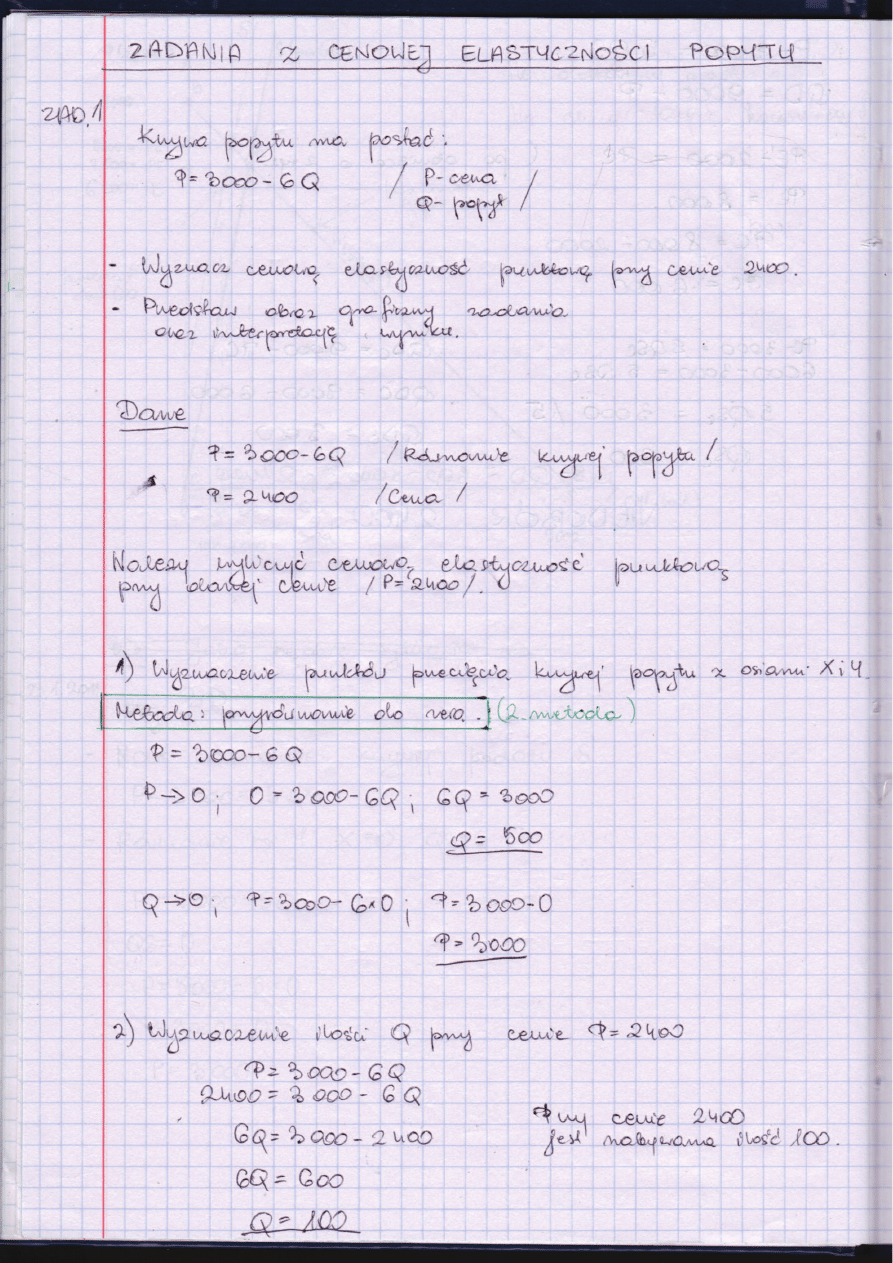 ZADANIA Z CENOWEJ ELASTYCZNOŚCI POPYTU
ZAD.1
Krzywa popytu ma postać:
P=3000-6Q / P-cena
Q-popyt /
- Wyznacz cenową elastyczność punktową przy cenie 2400.
- Przedstaw obraz graficzny zadania
oraz interpretację wyniku.
Dane
P=3000-6Q /Równanie krzywej popytu/
P=2400 /Cena/
Należy wyliczyć cenową elastyczność punktową
przy danej cenie /P=2400/.
1) Wyznaczenie punktów przecięcia krzywej popytu z osiami X i Y.
Metoda: przyrównanie do zera. (2. metoda)
P = 3000-6Q
P→0; 0=3000-6Q; 6Q=3000
Q= 500
Q→0; P=3000-6×0; P=3000-0
P=3000
2) Wyznaczenie ilości Q przy cenie P=2400
P=3000-6Q
2400=3000-6Q
6Q=3000-2400
6Q=600
Q=100
Przy cenie 2400
jest nabywana ilość 100.